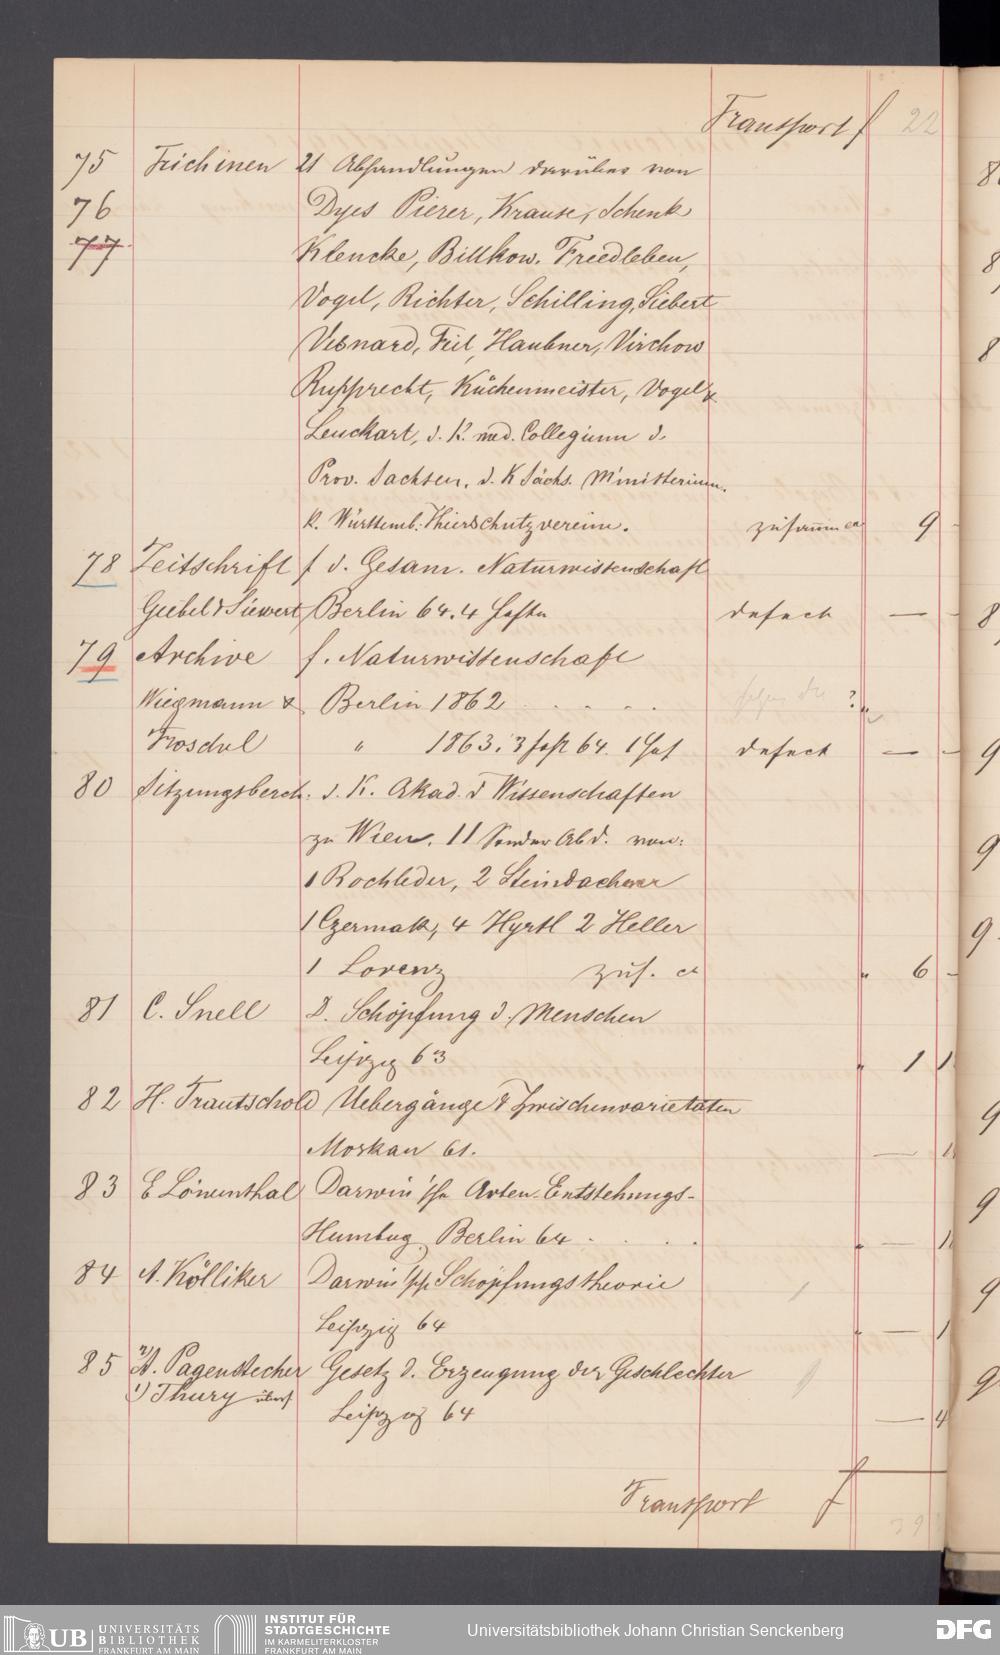 Transport f 22
75 Trichinen 21 Abhandlungen darüber von
76 Dyes Pierer, Krause, Schenk
77 Klencke, Billkow. Friedleben,
Vogel, Richter, Schilling, Siebert
Visnard, Feil, Haubner, Virchow
Rupprecht, Küchenmeister, Vogel &
Leuckart, d. K. med. Collegium d.
Prov. Sachsen, d. K Sächs. Ministerium.
K. Württemb. Thierschutzverein. zusammen 9
78 Zeitschrift f d. Gesam. Naturwissenschaft
Giebel & Siewert, Berlin 64. 4 Hefte defect —
79 Archive f. Naturwissenschaft
Wiegmann & Berlin 1862 . . . . ?
Troschel " 1863. 3 Hft 64. 1 Heft defect —
80 Sitzungsberch. d. K. Akad. d Wissenschaften
zu Wien. 11 Sonder Abd. von:
1 Rochleder, 2 Steindachner
1 Czermak, 4 Hyrtl 2 Heller
1 Lorenz zus. " 6 -
81 C. Snell D. Schöpfung d. Menschen
Leipzig 63 " 1 1
82 H. Trautschold Uebergänge & Zwischenvarietäten
Moskau 61. —
83 E Löwenthal Darwin'sche Arten-Entstehungs-
Humbug, Berlin 64 . . . . " —
84 A. Kölliker Darwin'sche Schöpfungstheorie
Leipzig 64 " — 1
85 2) A. Pagenstecher Gesetz d. Erzeugung der Geschlechter
1) Thury übers. Leipzig 64 — 4
Transport f
UB UNIVERSITÄTS
BIBLIOTHEK
FRANKFURT AM MAIN
INSTITUT FÜR
STADTGESCHICHTE
IM KARMELITERKLOSTER
FRANKFURT AM MAIN
Universitätsbibliothek Johann Christian Senckenberg
DFG